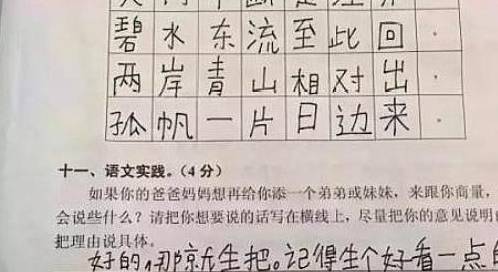 碧水东流至此回.
两岸青山相对出.
孤帆一片日边来.
十一、语文实践。(4分)
如果你的爸爸妈妈想再给你添一个弟弟或妹妹,来跟你商量,
会说些什么?请把你想要说的话写在横线上,尽量把你的意见说明
把理由说具体。
好的,那就生吧。记得生个好看一点